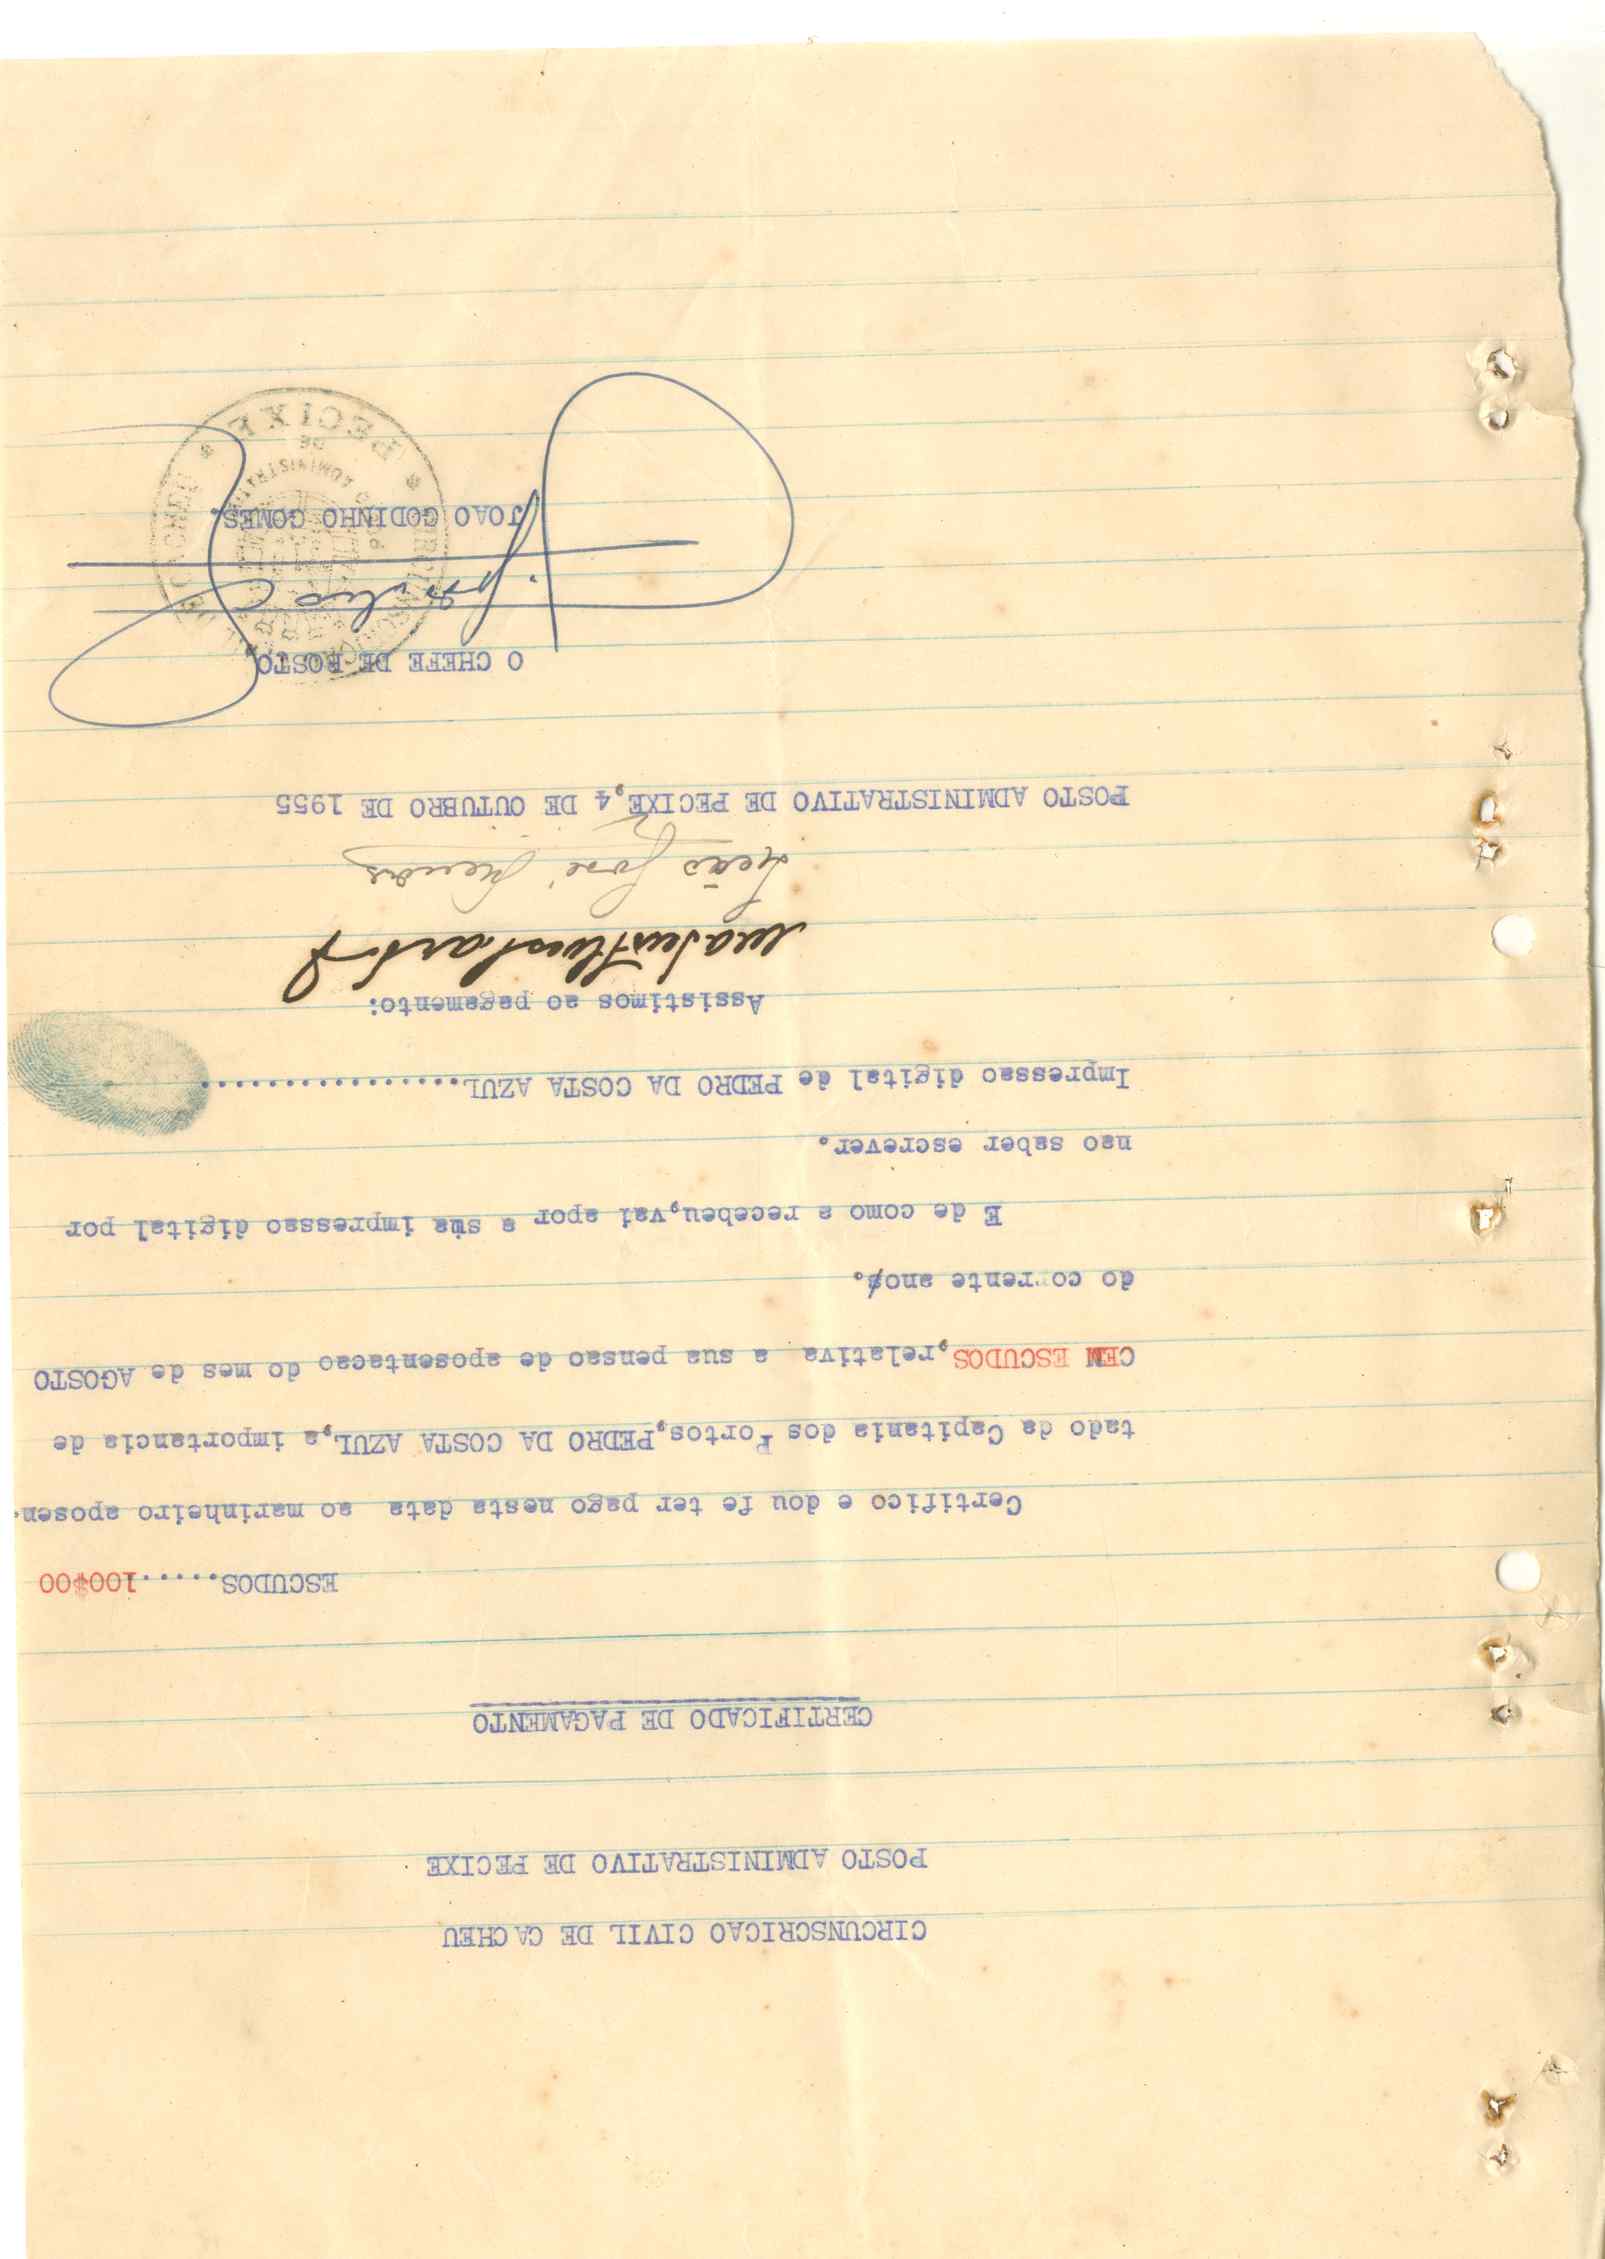 CIRCUNSCRICAO CIVIL DE CACHEU
POSTO ADMINISTRATIVO DE PECIXE
CERTIFICADO DE PAGAMENTO
ESCUDOS......100$00
Certifico e dou fe ter pago nesta data ao marinheiro aposen-
tado da Capitania dos Portos,PEDRO DA COSTA AZUL,a importancia de
CEM ESCUDOS,relativa a sua pensao de aposentacao do mes de AGOSTO
do corrente ano.
E de como a recebeu,vai apor a sua impressao digital por
nao saber escrever.
Impressao digital de PEDRO DA COSTA AZUL..................
Assistimos ao pagamento:
João José Mendes
POSTO ADMINISTRATIVO DE PECIXE,4 DE OUTUBRO DE 1955
O CHEFE DE POSTO
JOAO GODINHO GOMES.
CIRCUNSCRIÇÃO CIVIL DE CACHEU
POSTO ADMINISTRATIVO
DE
* PECIXE *